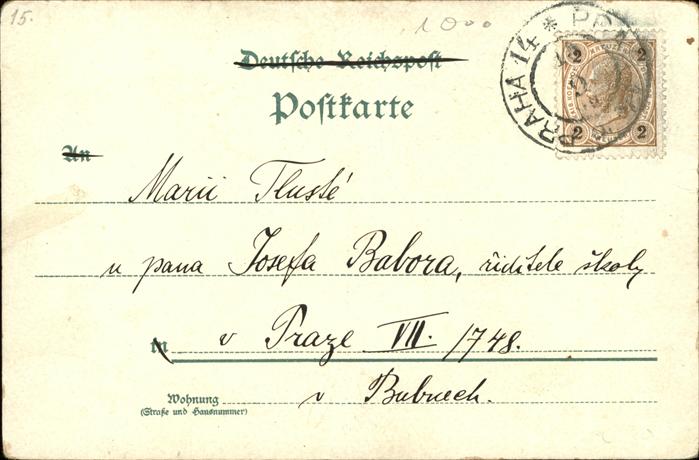 15.
1000
Deutsche Reichspost
Postkarte
PRAHA 14 *
2 2
2 2
An
Marii Tlusté
u pana Josefa Babora, řiditele školy
in v Praze VII. 1748.
Wohnung v Bubnech.
(Straße und Hausnummer)